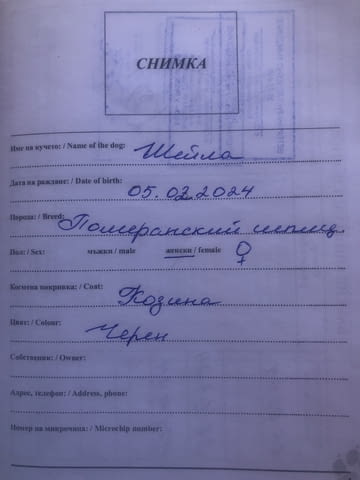 СНИМКА
Име на кучето: / Name of the dog: Шейла
Дата на раждане: / Date of birth: 05.02.2024
Порода: / Breed: Померански шпиц
Пол: / Sex: мъжки / male женски / female ♀
Космена покривка: / Coat: Козина
Цвят: / Colour: Черен
Собственик: / Owner:
Адрес, телефон: / Address, phone:
Номер на микрочипа: / Microchip number: